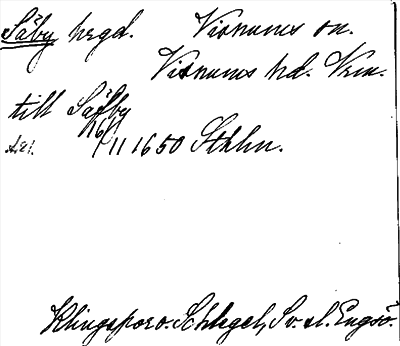 Säby hrgd. Visnums sn.
Visnums hd. Vrm.
till Säfby
16/11 1650 Sthlm.
Klingspor o. Schlegel, Sv. sl. Engsö.